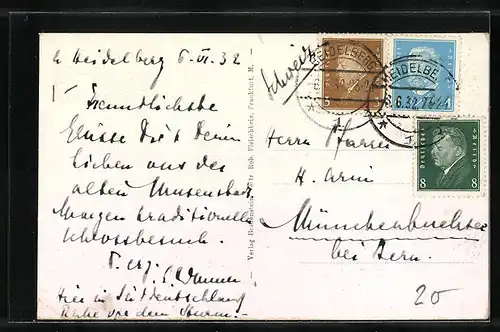 Heidelberg 6. VI. 32
Freundlichste
Grüsse Dir & Deinen
Lieben aus der
alten Musenstadt.
Morgen traditioneller
Schlossbesuch.
Hier in Süddeutschland
Ruhe vor dem Sturm.
Verlag Rob. Frankfurt a. M.
Schweiz
HEIDELBERG
HEIDELBE
6.6.32
3
4
Deutsches Reich
8 8
Herrn Pfarrer
H.
Münchenbuchsee
bei Bern.
20